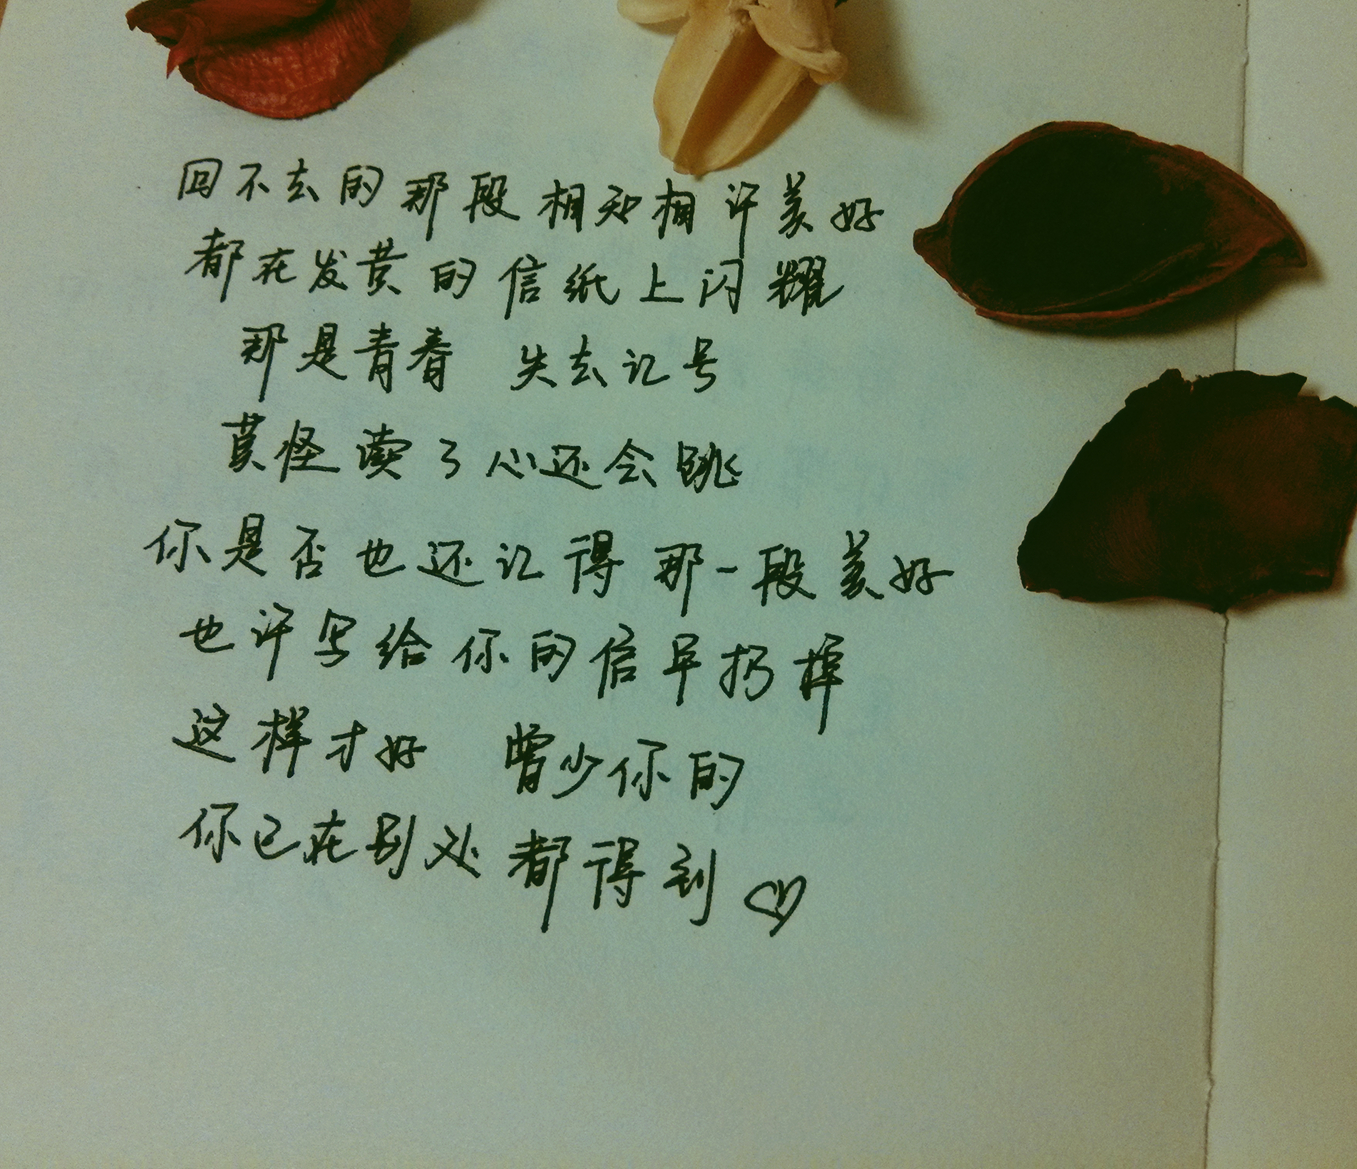 回不去的那段相知相许美好
都在发黄的信纸上闪耀
那是青春 失去记号
莫怪读了心还会跳
你是否也还记得那一段美好
也许写给你的信早扔掉
这样才好 曾少你的
你已在别处都得到